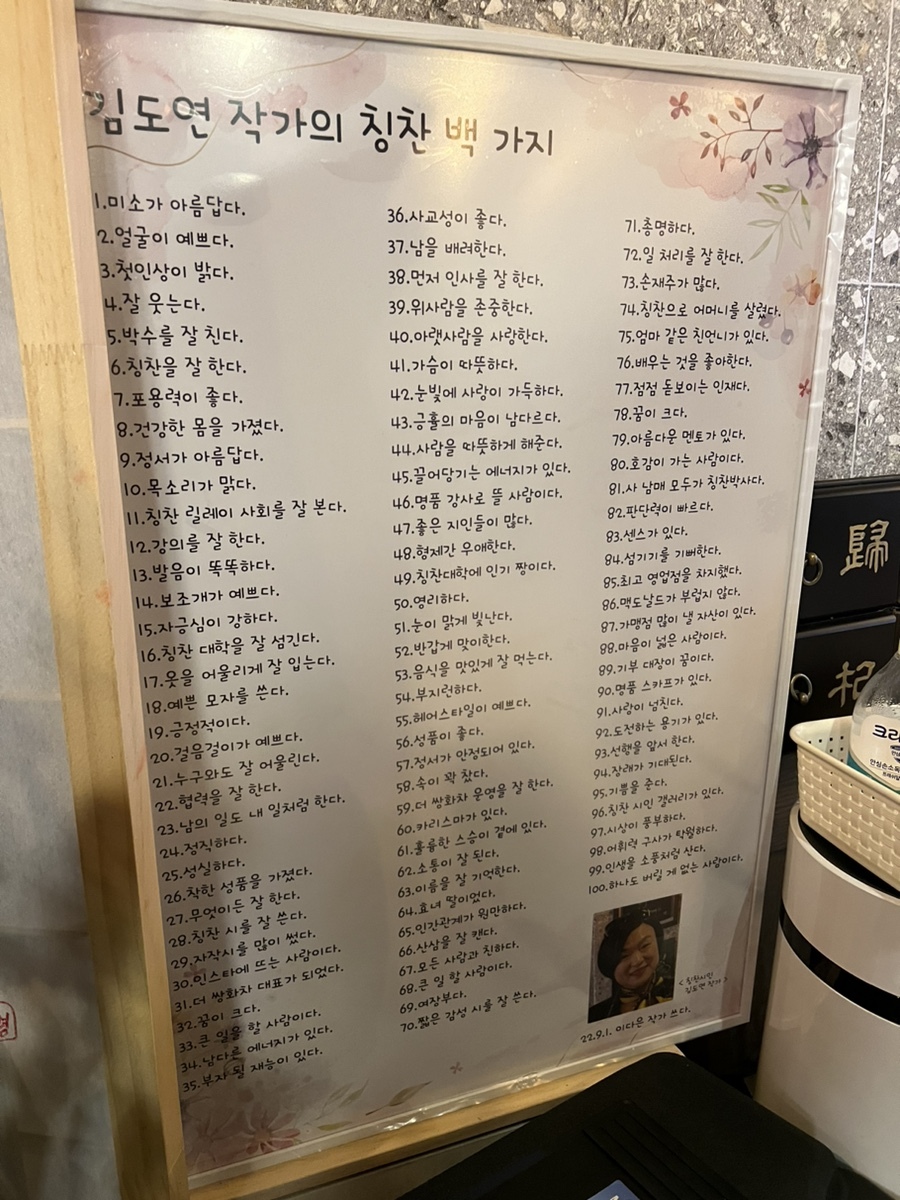 김도연 작가의 칭찬 백 가지
1.미소가 아름답다.
2.얼굴이 예쁘다.
3.첫인상이 밝다.
4.잘 웃는다.
5.박수를 잘 친다.
6.칭찬을 잘 한다.
7.포용력이 좋다.
8.건강한 몸을 가졌다.
9.정서가 아름답다.
10.목소리가 맑다.
11.칭찬 릴레이 사회를 잘 본다.
12.강의를 잘 한다.
13.발음이 똑똑하다.
14.보조개가 예쁘다.
15.자긍심이 강하다.
16.칭찬 대학을 잘 섬긴다.
17.옷을 어울리게 잘 입는다.
18.예쁜 모자를 쓴다.
19.긍정적이다.
20.걸음걸이가 예쁘다.
21.누구와도 잘 어울린다.
22.협력을 잘 한다.
23.남의 일도 내 일처럼 한다.
24.정직하다.
25.성실하다.
26.착한 성품을 가졌다.
27.무엇이든 잘 한다.
28.칭찬 시를 잘 쓴다.
29.자작시를 많이 썼다.
30.인스타에 뜨는 사람이다.
31.더 쌍화차 대표가 되었다.
32.꿈이 크다.
33.큰 일을 할 사람이다.
34.남다른 에너지가 있다.
35.부자 될 재능이 있다.
36.사교성이 좋다.
37.남을 배려한다.
38.먼저 인사를 잘 한다.
39.위사람을 존중한다.
40.아랫사람을 사랑한다.
41.가슴이 따뜻하다.
42.눈빛에 사랑이 가득하다.
43.긍휼의 마음이 남다르다.
44.사람을 따뜻하게 해준다.
45.끌어당기는 에너지가 있다.
46.명품 강사로 뜰 사람이다.
47.좋은 지인들이 많다.
48.형제간 우애한다.
49.칭찬대학에 인기 짱이다.
50.영리하다.
51.눈이 맑게 빛난다.
52.반갑게 맞이한다.
53.음식을 맛있게 잘 먹는다.
54.부지런하다.
55.헤어스타일이 예쁘다.
56.성품이 좋다.
57.정서가 안정되어 있다.
58.속이 꽉 찼다.
59.더 쌍화차 운영을 잘 한다.
60.카리스마가 있다.
61.훌륭한 스승이 곁에 있다.
62.소통이 잘 된다.
63.이름을 잘 기억한다.
64.효녀 딸이었다.
65.인간관계가 원만하다.
66.산삼을 잘 캔다.
67.모든 사람과 친하다.
68.큰 일 할 사람이다.
69.여장부다.
70.짧은 감성 시를 잘 쓴다.
71.총명하다.
72.일 처리를 잘 한다.
73.손재주가 많다.
74.칭찬으로 어머니를 살렸다.
75.엄마 같은 친언니가 있다.
76.배우는 것을 좋아한다.
77.점점 돋보이는 인재다.
78.꿈이 크다.
79.아름다운 멘토가 있다.
80.호감이 가는 사람이다.
81.사 남매 모두가 칭찬박사다.
82.판단력이 빠르다.
83.센스가 있다.
84.섬기기를 기뻐한다.
85.최고 영업점을 차지했다.
86.맥도날드가 부럽지 않다.
87.가맹점 많이 낼 자산이 있다.
88.마음이 넓은 사람이다.
89.기부 대장이 꿈이다.
90.명품 스카프가 있다.
91.사랑이 넘친다.
92.도전하는 용기가 있다.
93.선행을 앞서 한다.
94.장래가 기대된다.
95.기쁨을 준다.
96.칭찬 시인 갤러리가 있다.
97.시상이 풍부하다.
98.어휘력 구사가 탁월하다.
99.인생을 소풍처럼 산다.
100.하나도 버릴 게 없는 사람이다.
<칭찬시인
김도연 작가>
22.9.1. 이다은 작가 쓰다.
歸